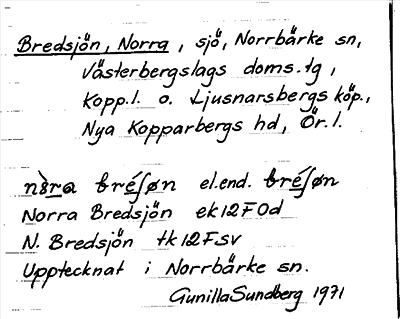 Bredsjön, Norra, sjö, Norrbärke sn,
Västerbergslags doms.tg,
Kopp.l. o. Ljusnarsbergs köp.,
Nya Kopparbergs hd, Ör.l.
el.end.
Norra Bredsjön ek 12 F 0d
N. Bredsjön tk 12 F SV
Upptecknat i Norrbärke sn.
Gunilla Sundberg 1971